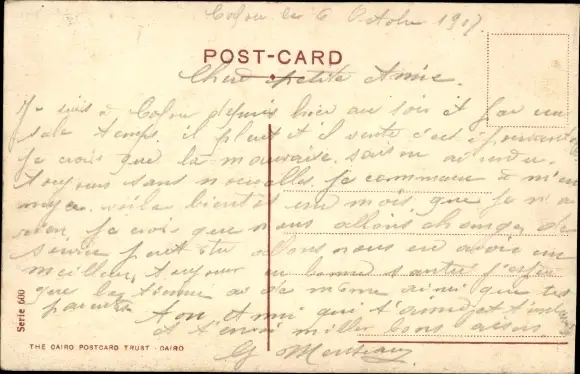 Colon le 6 Octobre 1917.
POST-CARD
Chère petite Amie.
Je suis à Colon depuis hier au soir et j'ai un
sale temps. il pleut et il vente c'est épouvantable
je crois que la mauvaise saison
toujours sans nouvelles je commence à m'en
nuyer. voila bientôt un mois que je n'ai
rien je crois que nous allons changer de
service peut être allons nous en avoir un
meilleur, toujours en bonne santé j'espère
que la tienne de même ainsi que tes
parents
Ton Ami qui t'aime et
et t'envoi mille bons baisers
G
Serie 600
THE CAIRO POSTCARD TRUST - CAIRO